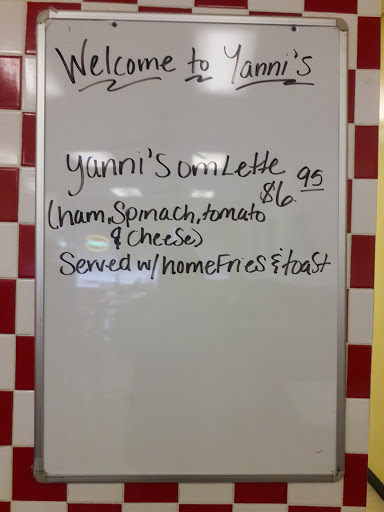 Welcome to Yanni's
Yanni's omLette
$6.95
(ham, Spinach, tomato
& cheese)
Served w/ homeFries & toast